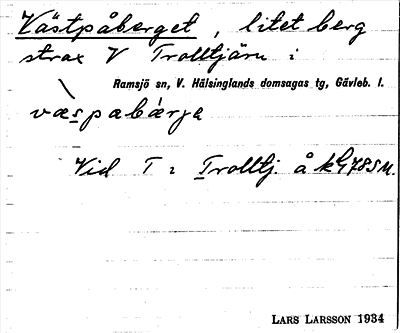 Västpåberget, litet berg
strax V Trolltjärn i
Ramsjö sn, V. Hälsinglands domsagas tg, Gävleb. l.
væspabærja
Vid T i Trolltj. å kG78SM.
LARS LARSSON 1934